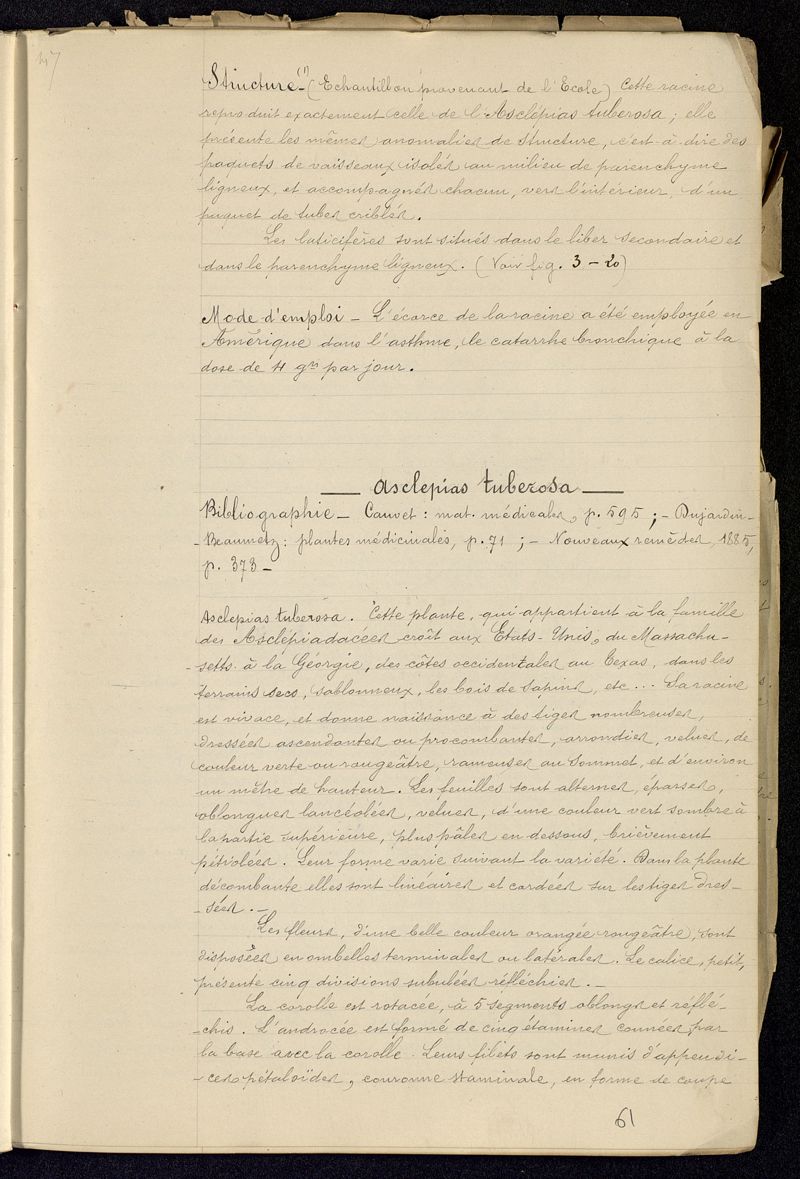 47
Structure (1) (Echantillon provenant de l'Ecole) Cette racine
reproduit exactement celle de l'Asclépias tuberosa ; elle
présente les mêmes anomalies de structure, c'est à dire des
paquets de vaisseaux isolés au milieu de parenchyme
ligneux, et accompagnés chacun, vers l'intérieur, d'un
paquet de tubes criblés.
Les laticifères sont situés dans le liber secondaire et
dans le parenchyme ligneux. (Voir fig. 3-20)
Mode d'emploi - L'écorce de la racine a été employée en
Amérique dans l'asthme, le catarrhe bronchique à la
dose de 4 grs par jour.
— Asclepias tuberosa —
Bibliographie - Cauvet : mat. médicales, p. 595 ; - Dujardin-
-Beaumetz : plantes médicinales, p. 71 ; - Nouveaux remèdes, 1885,
p. 373 -
Asclepias tuberosa. Cette plante, qui appartient à la famille
des Asclépiadacées croît aux Etats-Unis, du Massachu-
-setts à la Géorgie, des côtes occidentales au Texas, dans les
terrains secs, sablonneux, les bois de sapins, etc... Sa racine
est vivace, et donne naissance à des tiges nombreuses,
dressées ascendantes ou procombantes, arrondies, velues, de
couleur verte ou rougeâtre, rameuses au sommet, et d'environ
un mètre de hauteur. Les feuilles sont alternes, éparses,
oblongues lancéolées, velues, d'une couleur vert sombre à
la partie supérieure, plus pâles en dessous, brièvement
pétiolées. Leur forme varie suivant la variété. Dans la plante
décombante elles sont linéaires et cordées sur les tiges dres-
-sées. -
Les fleurs, d'une belle couleur orangée rougeâtre, sont
disposées en ombelles terminales ou latérales. Le calice, petit,
présente cinq divisions subulées réfléchies. -
La corolle est rotacée, à 5 segments oblongs et réflé-
-chis. L'androcée est formé de cinq étamines connées par
la base avec la corolle. Leurs filets sont munis d'appendi-
-ces pétaloïdes, couronne staminale, en forme de coupe
61